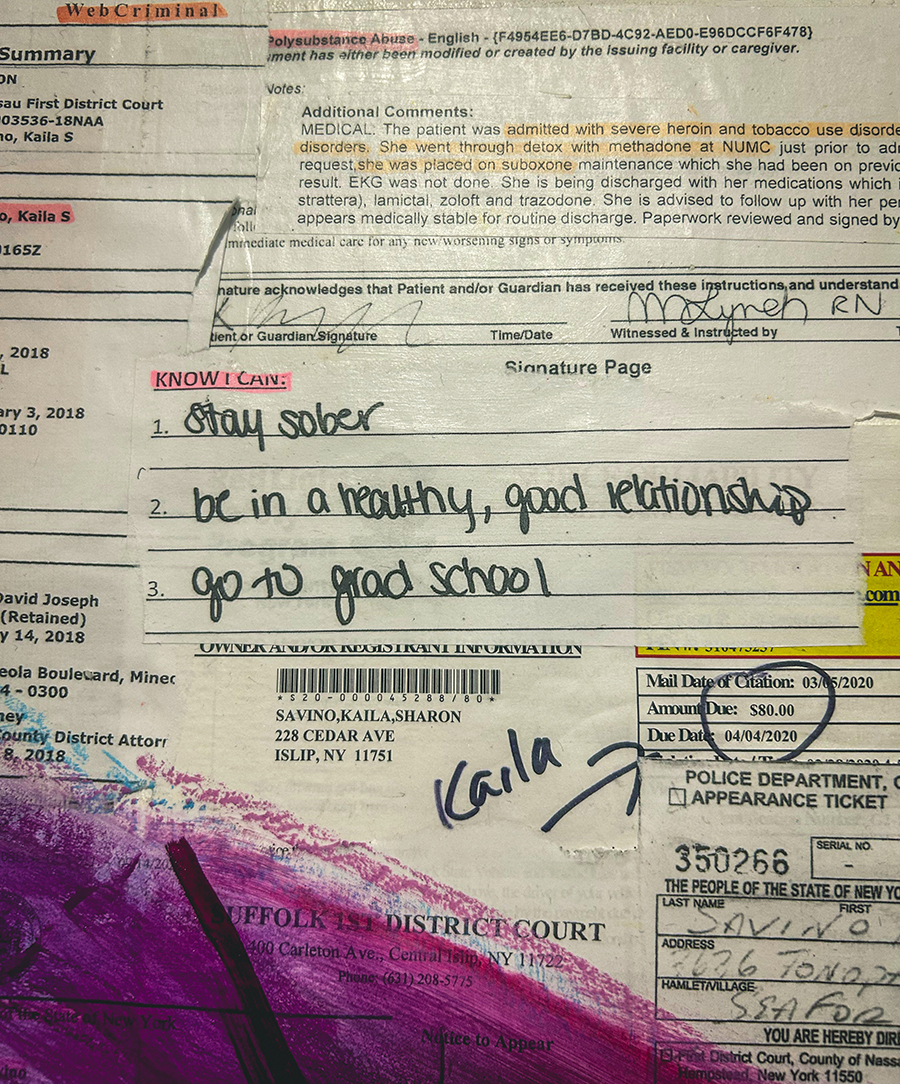 WebCriminal
Summary
ON
sau First District Court
003536-18NAA
no, Kaila S
o, Kaila S
0165Z
, 2018
L
ary 3, 2018
0110
David Joseph
(Retained)
y 14, 2018
eola Boulevard, Mineo
4 - 0300
ney
County District Attorr
8, 2018
Polysubstance Abuse - English - {F4954EE6-D7BD-4C92-AED0-E96DCCF6F478}
ment has either been modified or created by the issuing facility or caregiver.
Notes:
Additional Comments:
MEDICAL: The patient was admitted with severe heroin and tobacco use disorde
disorders. She went through detox with methadone at NUMC just prior to adm
request,she was placed on suboxone maintenance which she had been on previo
result. EKG was not done. She is being discharged with her medications which i
strattera), lamictal, zoloft and trazodone. She is advised to follow up with her per
appears medically stable for routine discharge. Paperwork reviewed and signed by
onal
foll
immediate medical care for any new/worsening signs or symptoms.
nature acknowledges that Patient and/or Guardian has received these instructions,and understand
K
McLynch RN
tient or Guardian Signature Time/Date Witnessed & Instructed by
Signature Page
KNOW I CAN:
1. Stay sober
2. be in a healthy, good relationship
3. go to grad school
OWNER AND/OR REGISTRANT INFORMATION
*S20-000045288/80*
SAVINO,KAILA,SHARON
228 CEDAR AVE
ISLIP, NY 11751
Kaila
N AN
.com
Mail Date of Citation: 03/05/2020
Amount Due: $80.00
Due Date: 04/04/2020
POLICE DEPARTMENT, C
APPEARANCE TICKET
350266
SERIAL NO.
-
THE PEOPLE OF THE STATE OF NEW YO
LAST NAME FIRST
SAVINO
ADDRESS
TONOP
HAMLET/VILLAGE
SEAFOR
YOU ARE HEREBY DIR
First District Court, County of Nassa
Hempstead, New York 11550
SUFFOLK 1ST DISTRICT COURT
400 Carleton Ave., Central Islip, NY 11722
Phone: (631) 208-5775
of the State of New York
Notice to Appear
vino